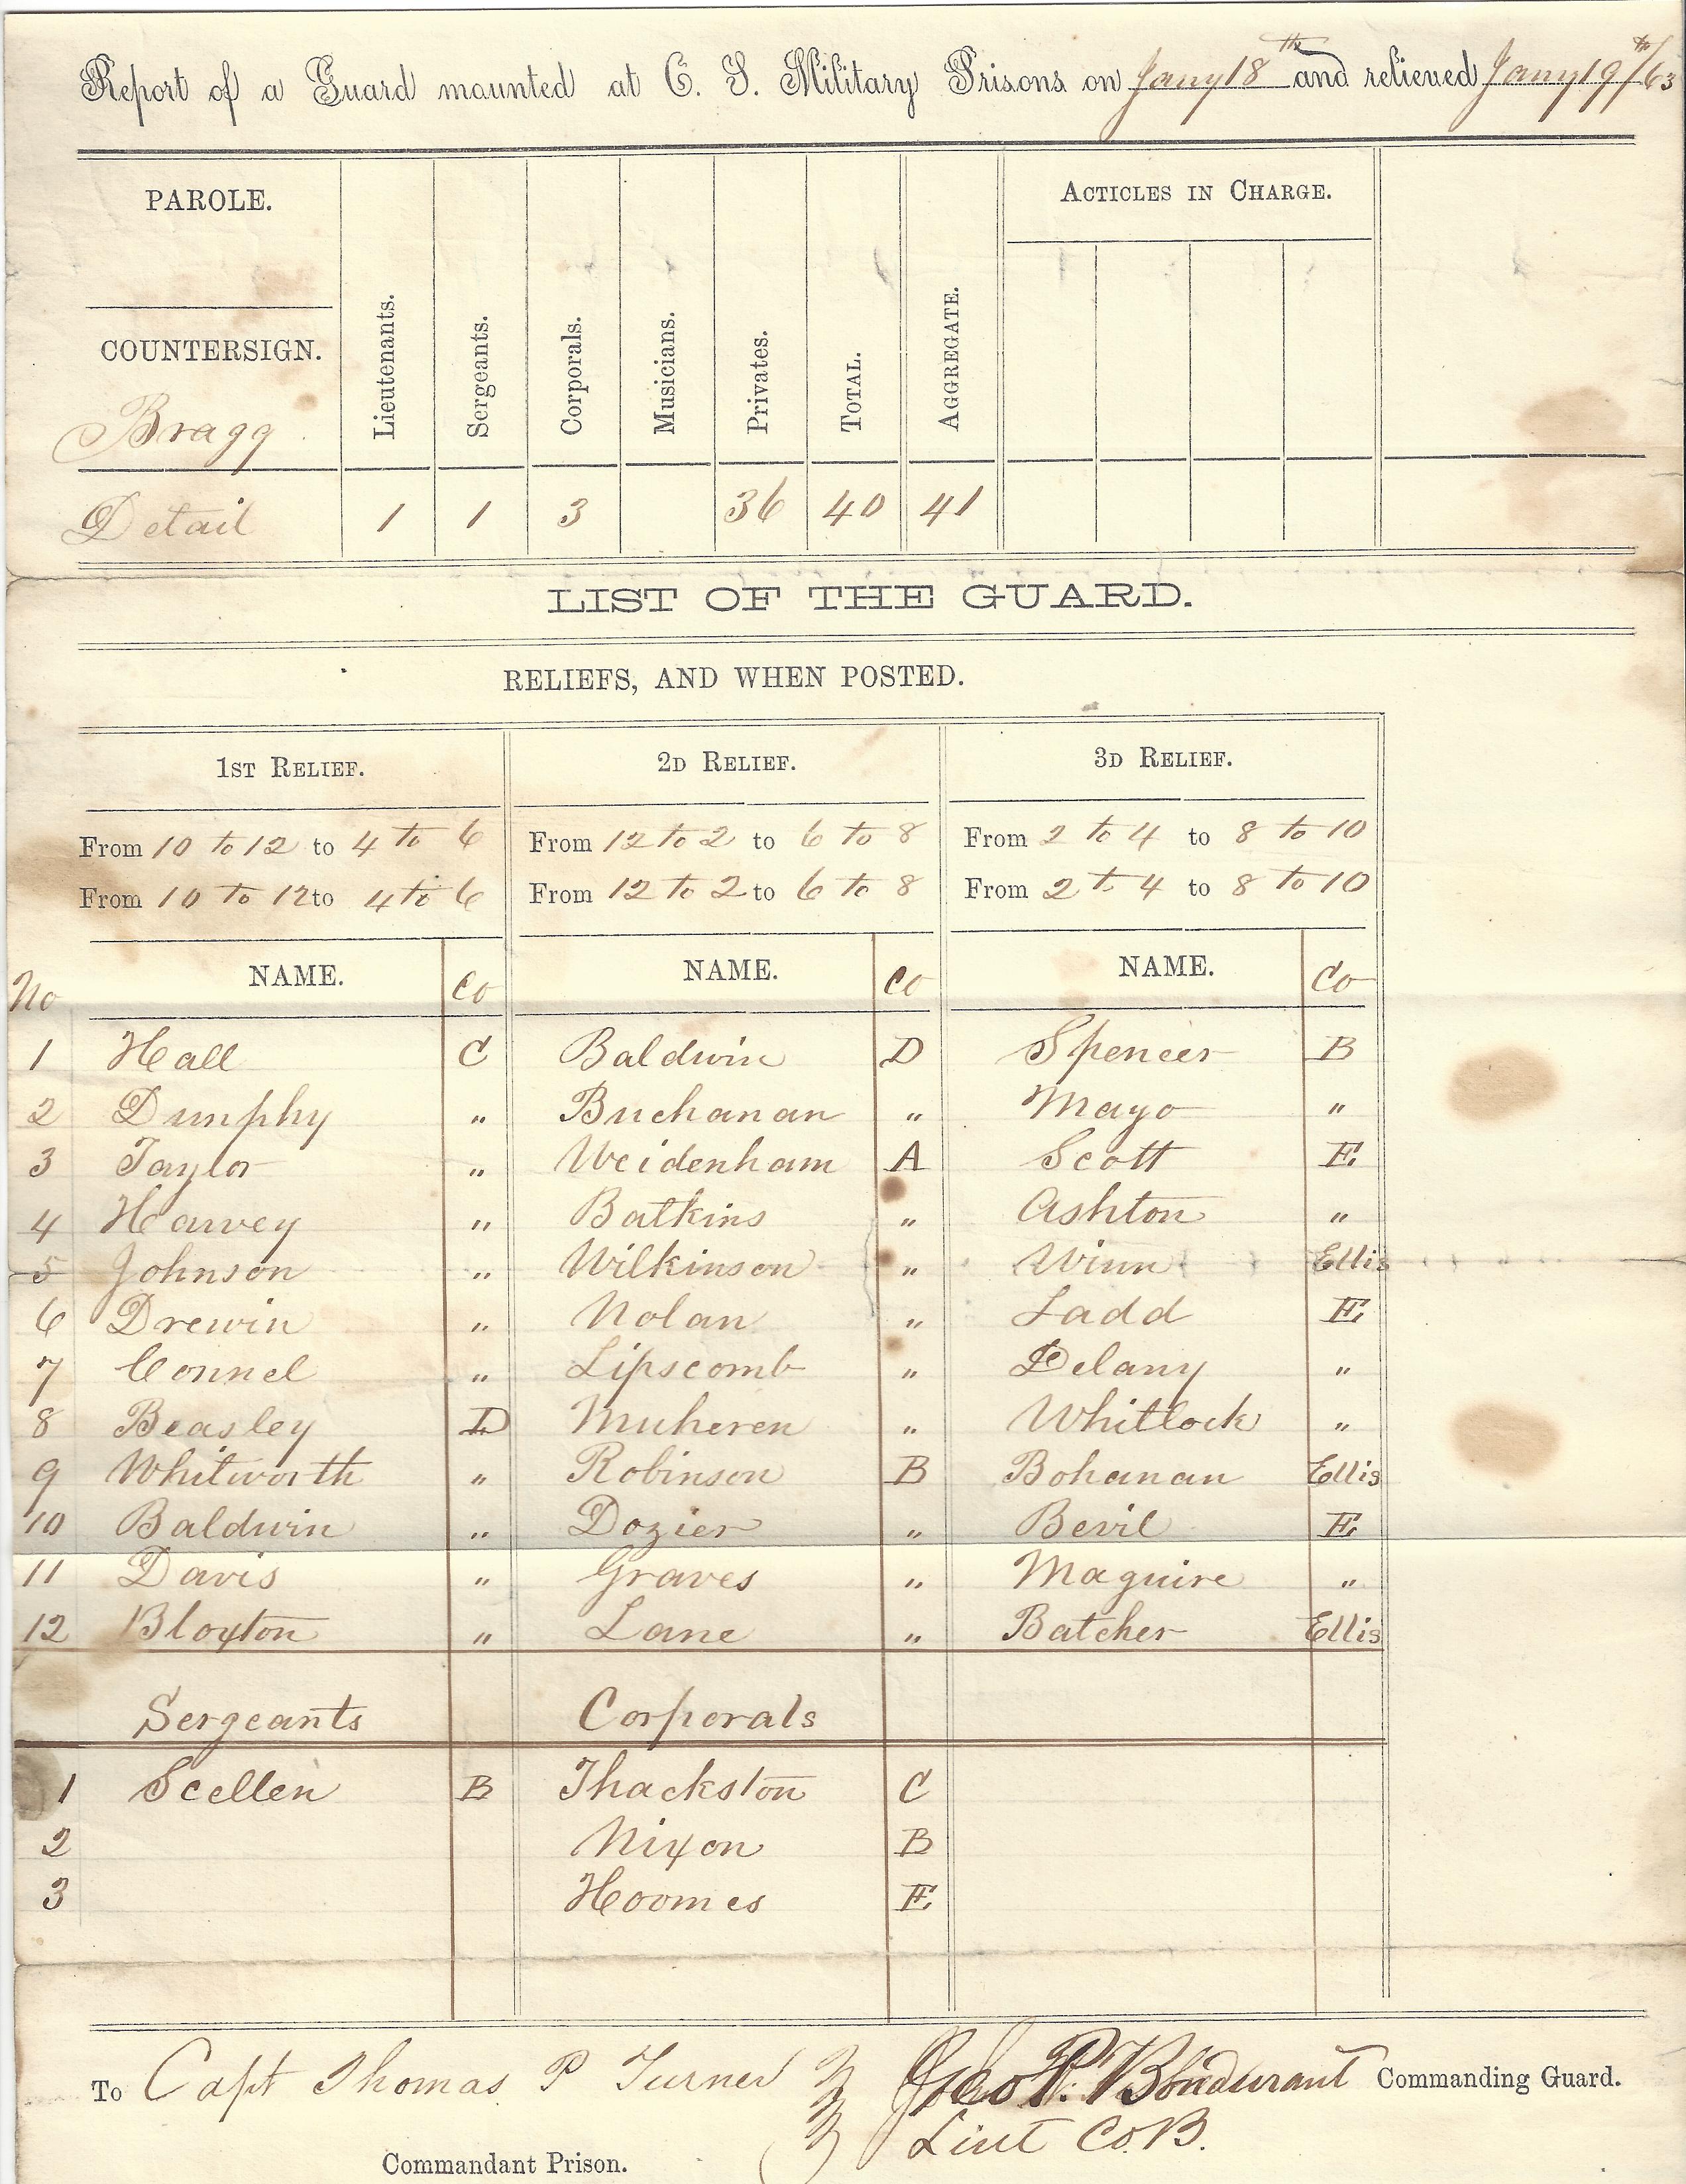 Report of a Guard mounted at C. S. Military Prisons on Jany 18th and relieved Jany 19th/63
PAROLE.
COUNTERSIGN.
Bragg
Lieutenants. Sergeants. Corporals. Musicians. Privates. TOTAL. AGGREGATE.
ACTICLES IN CHARGE.
Detail 1 1 3 36 40 41
LIST OF THE GUARD.
RELIEFS, AND WHEN POSTED.
1ST RELIEF. 2D RELIEF. 3D RELIEF.
From 10 to 12 to 4 to 6 From 12 to 2 to 6 to 8 From 2 to 4 to 8 to 10
From 10 to 12 to 4 to 6 From 12 to 2 to 6 to 8 From 2 to 4 to 8 to 10
No NAME. Co NAME. Co NAME. Co
1 Hall C Baldwin D Spencer B
2 Dunphy " Buchanan " Mayo "
3 Taylor " Weidenham A Scott E
4 Harvey " Batkins " Ashton "
5 Johnson " Wilkinson " Winn Ellis
6 Drewin " Nolan " Ladd E
7 Connel " Lipscomb " Delany "
8 Beasley D Muheren " Whitlock "
9 Whitworth " Robinson B Bohanan Ellis
10 Baldwin " Dozier " Bevil E
11 Davis " Graves " Maguire "
12 Bloxton " Lane " Batcher Ellis
Sergeants Corporals
1 Scellen B Thackston C
2 Nixon B
3 Hoomes E
To Capt Thomas P Turner Geo P. Bondurant Commanding Guard.
Lieut Co. B.
Commandant Prison.